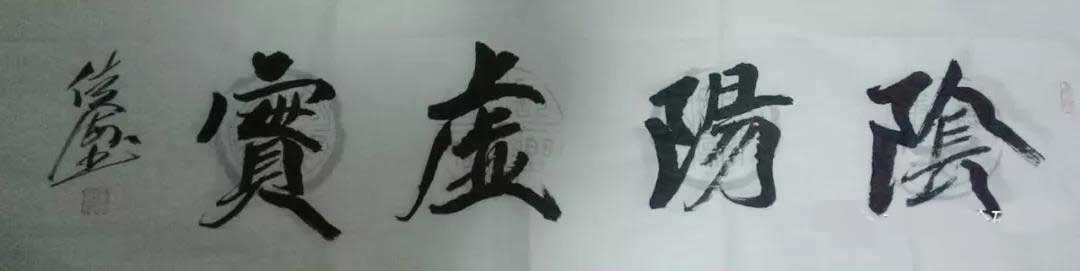 陰陽虛實